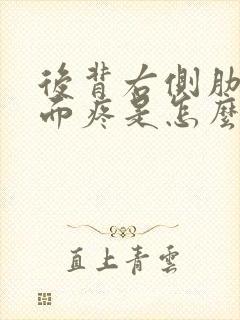 後背右側肋
而疼是怎麼
直上青雲